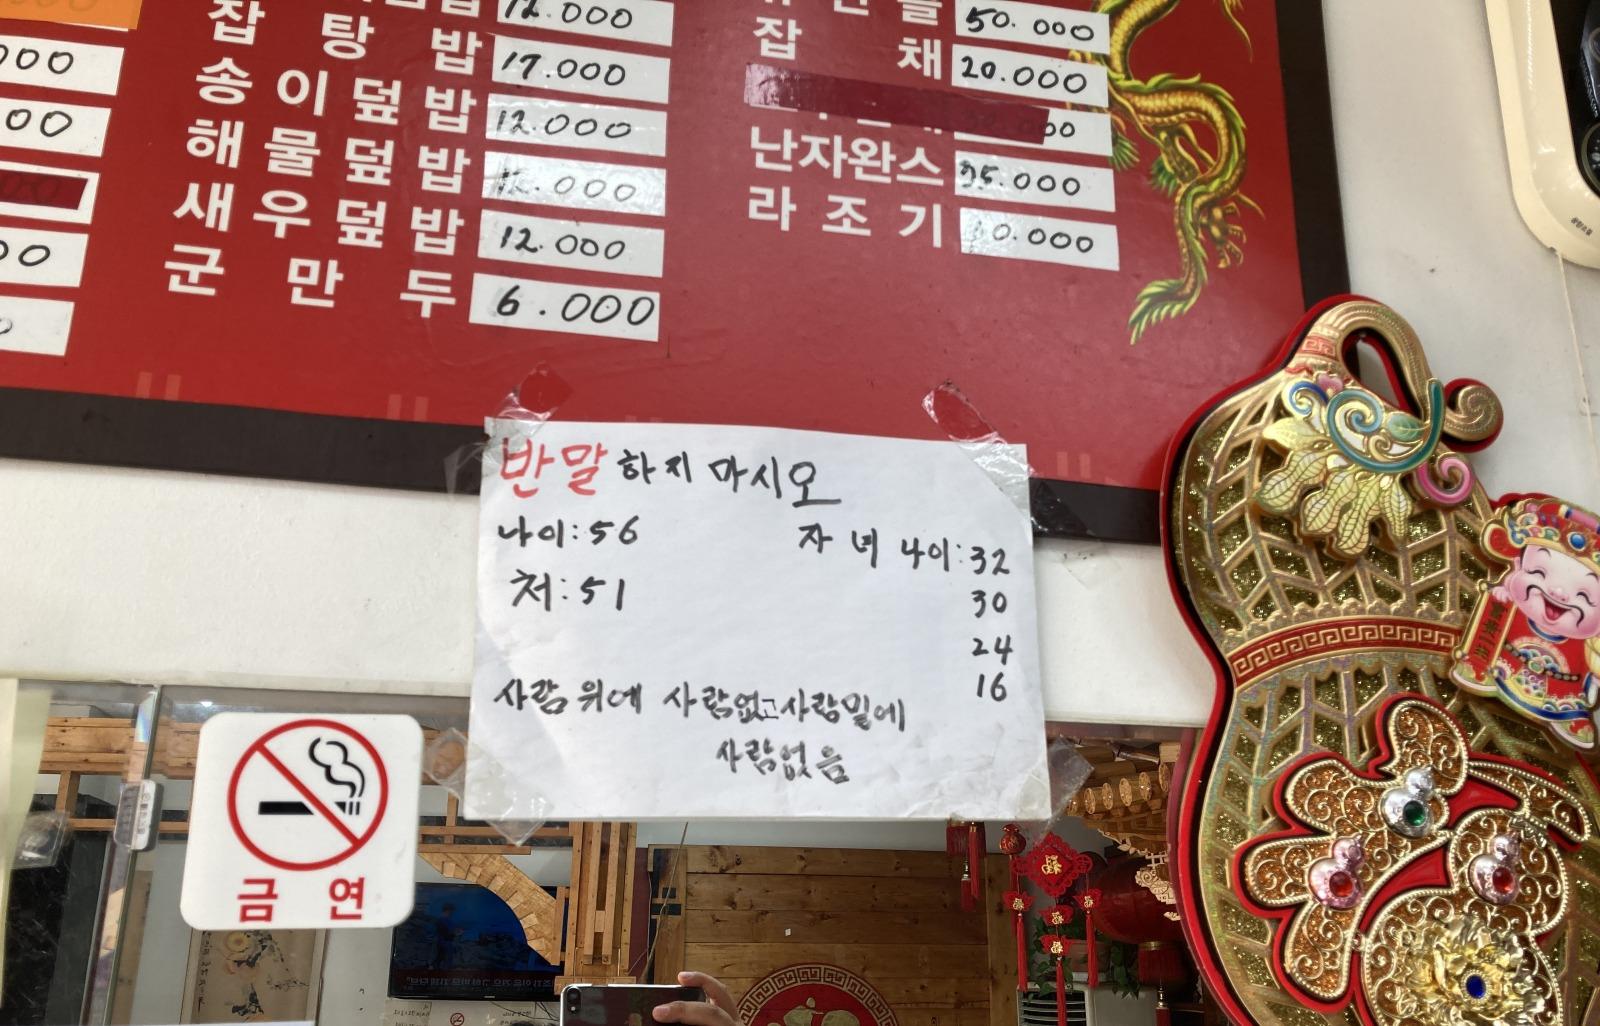 12.000
잡탕밥 17.000
송이덮밥 12.000
해물덮밥 12.000
새우덮밥 12.000
군만두 6.000
50.000
잡채 20.000
난자완스 35.000
라조기
반말 하지 마시오
나이: 56
처: 51
자녀 나이: 32
30
24
16
사람 위에 사람없고 사람밑에
사람없음
금연